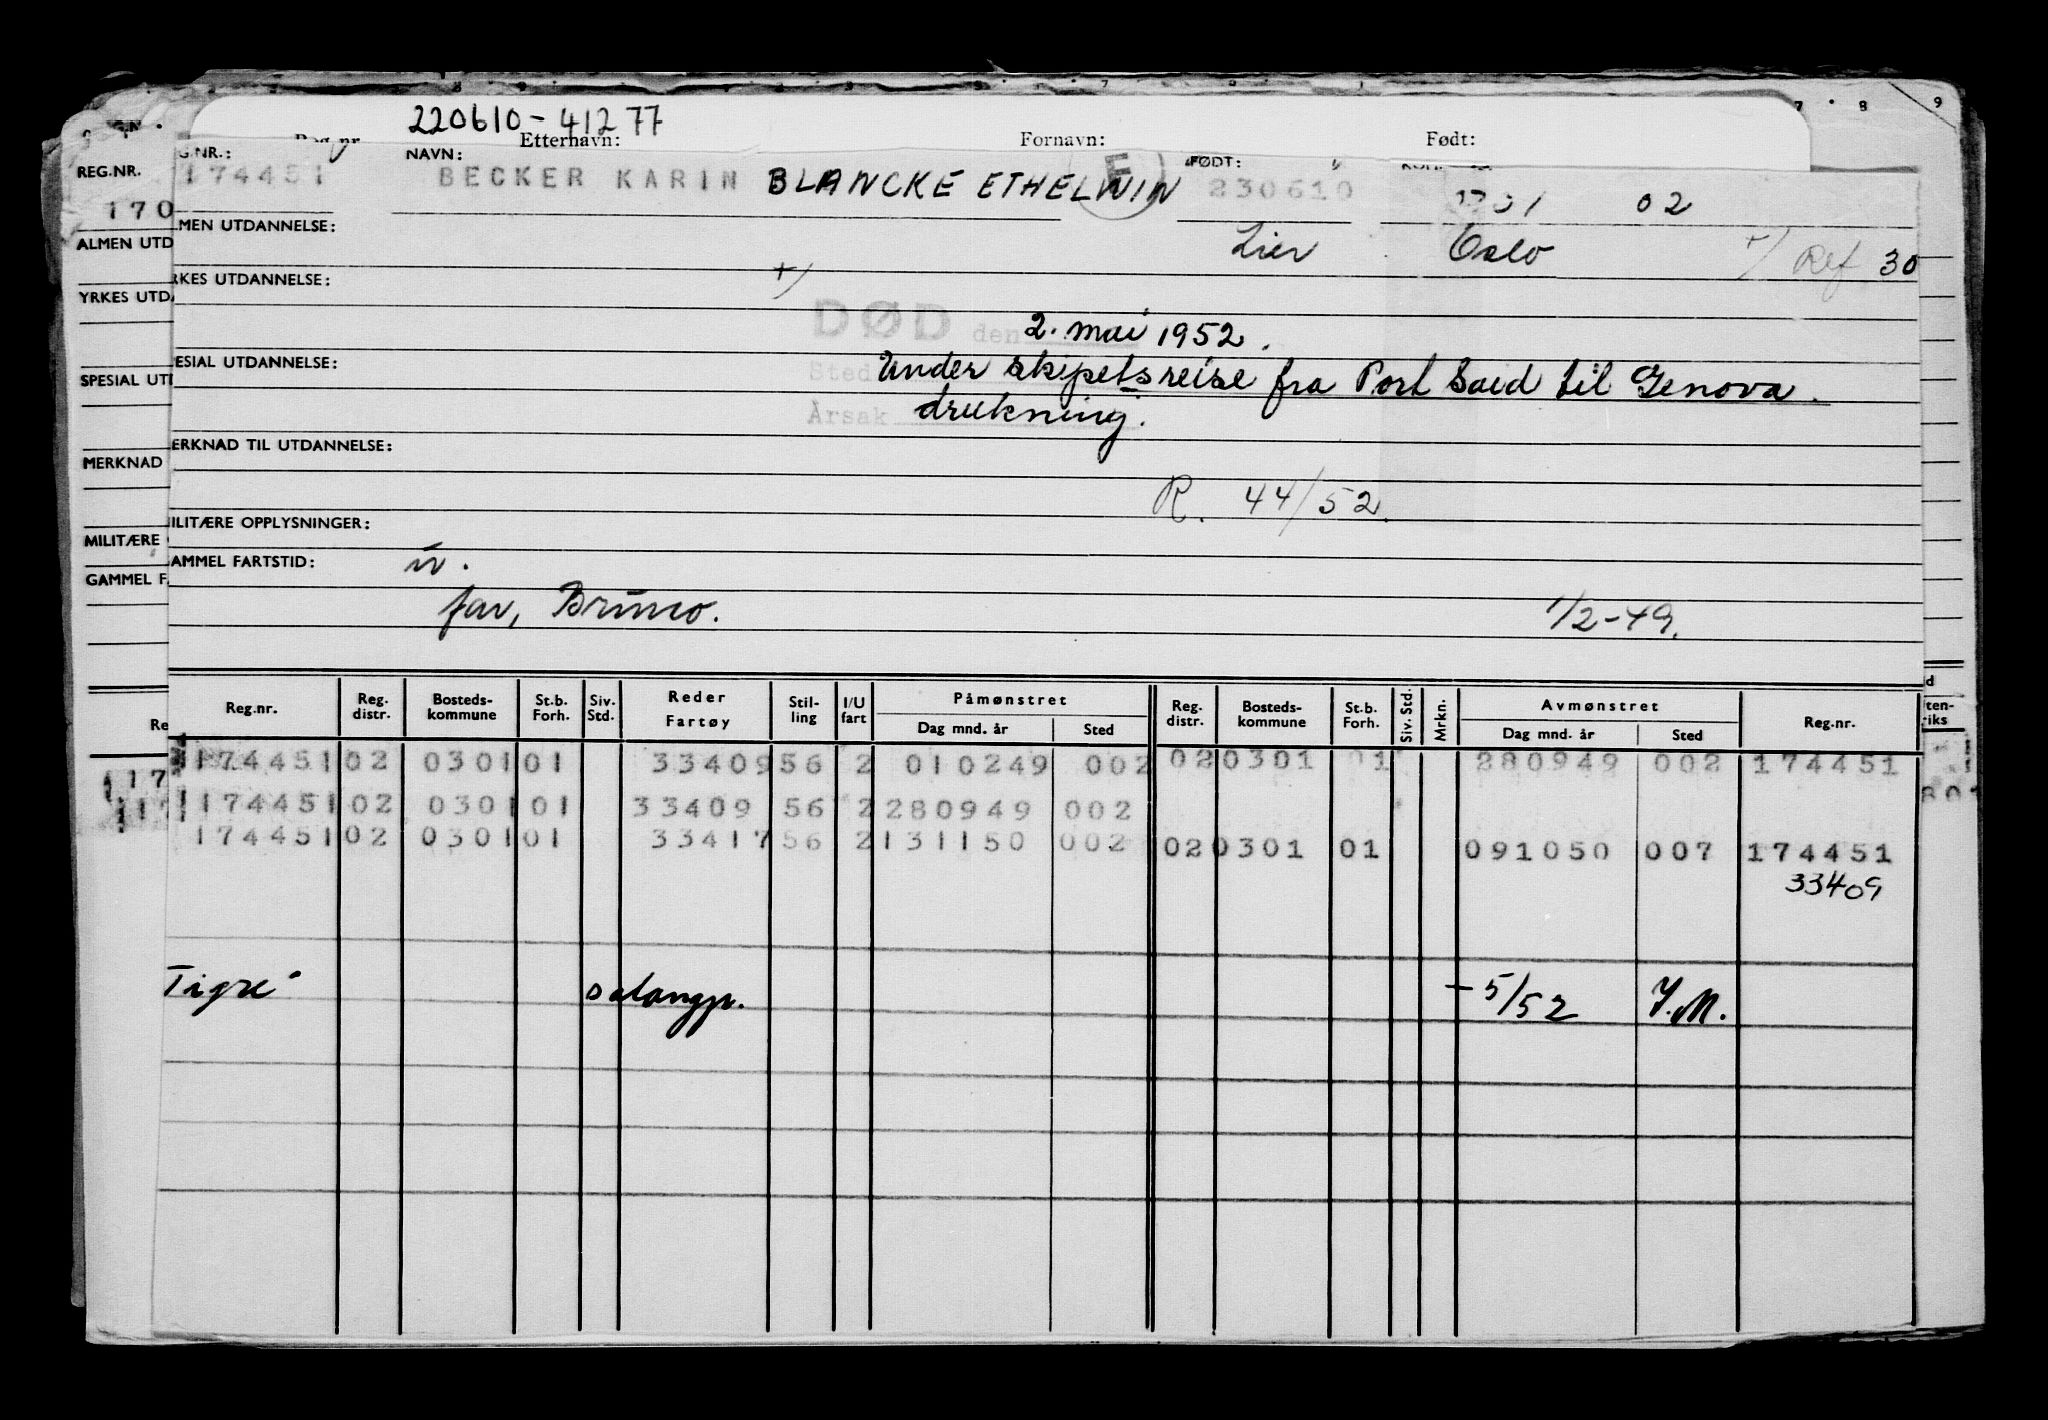 220610-41277
Etternavn: Fornavn: Født:
REG.NR. NAVN: FØDT:
174451 BECKER KARIN BLANCKE ETHELWIN 230610 02
170
ALMEN UTD MEN UTDANNELSE: Lier Oslo +/ Ref 30
YRKES UTD RKES UTDANNELSE: +/
DØD den 2. mai 1952.
SPESIAL UTD ESIAL UTDANNELSE: Sted Under skipetsreise fra Port Said til Genova.
Årsak drukning.
MERKNAD ERKNAD TIL UTDANNELSE:
R. 44/52.
MILITÆRE ILITÆRE OPPLYSNINGER:
GAMMEL F AMMEL FARTSTID:
far, Bruno. 1/2-49.
Reg.nr. Reg. distr. Bosteds-kommune St.b. Forh. Siv. Std. Reder Fartøy Stil-ling I/U fart Påmønstret Dag mnd. år Sted Reg. distr. Bosteds-kommune St.b. Forh. Siv. Std. Mrkn. Avmønstret Dag mnd. år Sted Reg.nr.
174451 02 0301 01 33409 56 2 010249 002 02 0301 01 280949 002 174451
174451 02 0301 01 33409 56 2 280949 002
174451 02 0301 01 33417 56 2 131150 002 02 0301 01 091050 007 174451
33409
Tigre salangp. -5/52 Y.M.